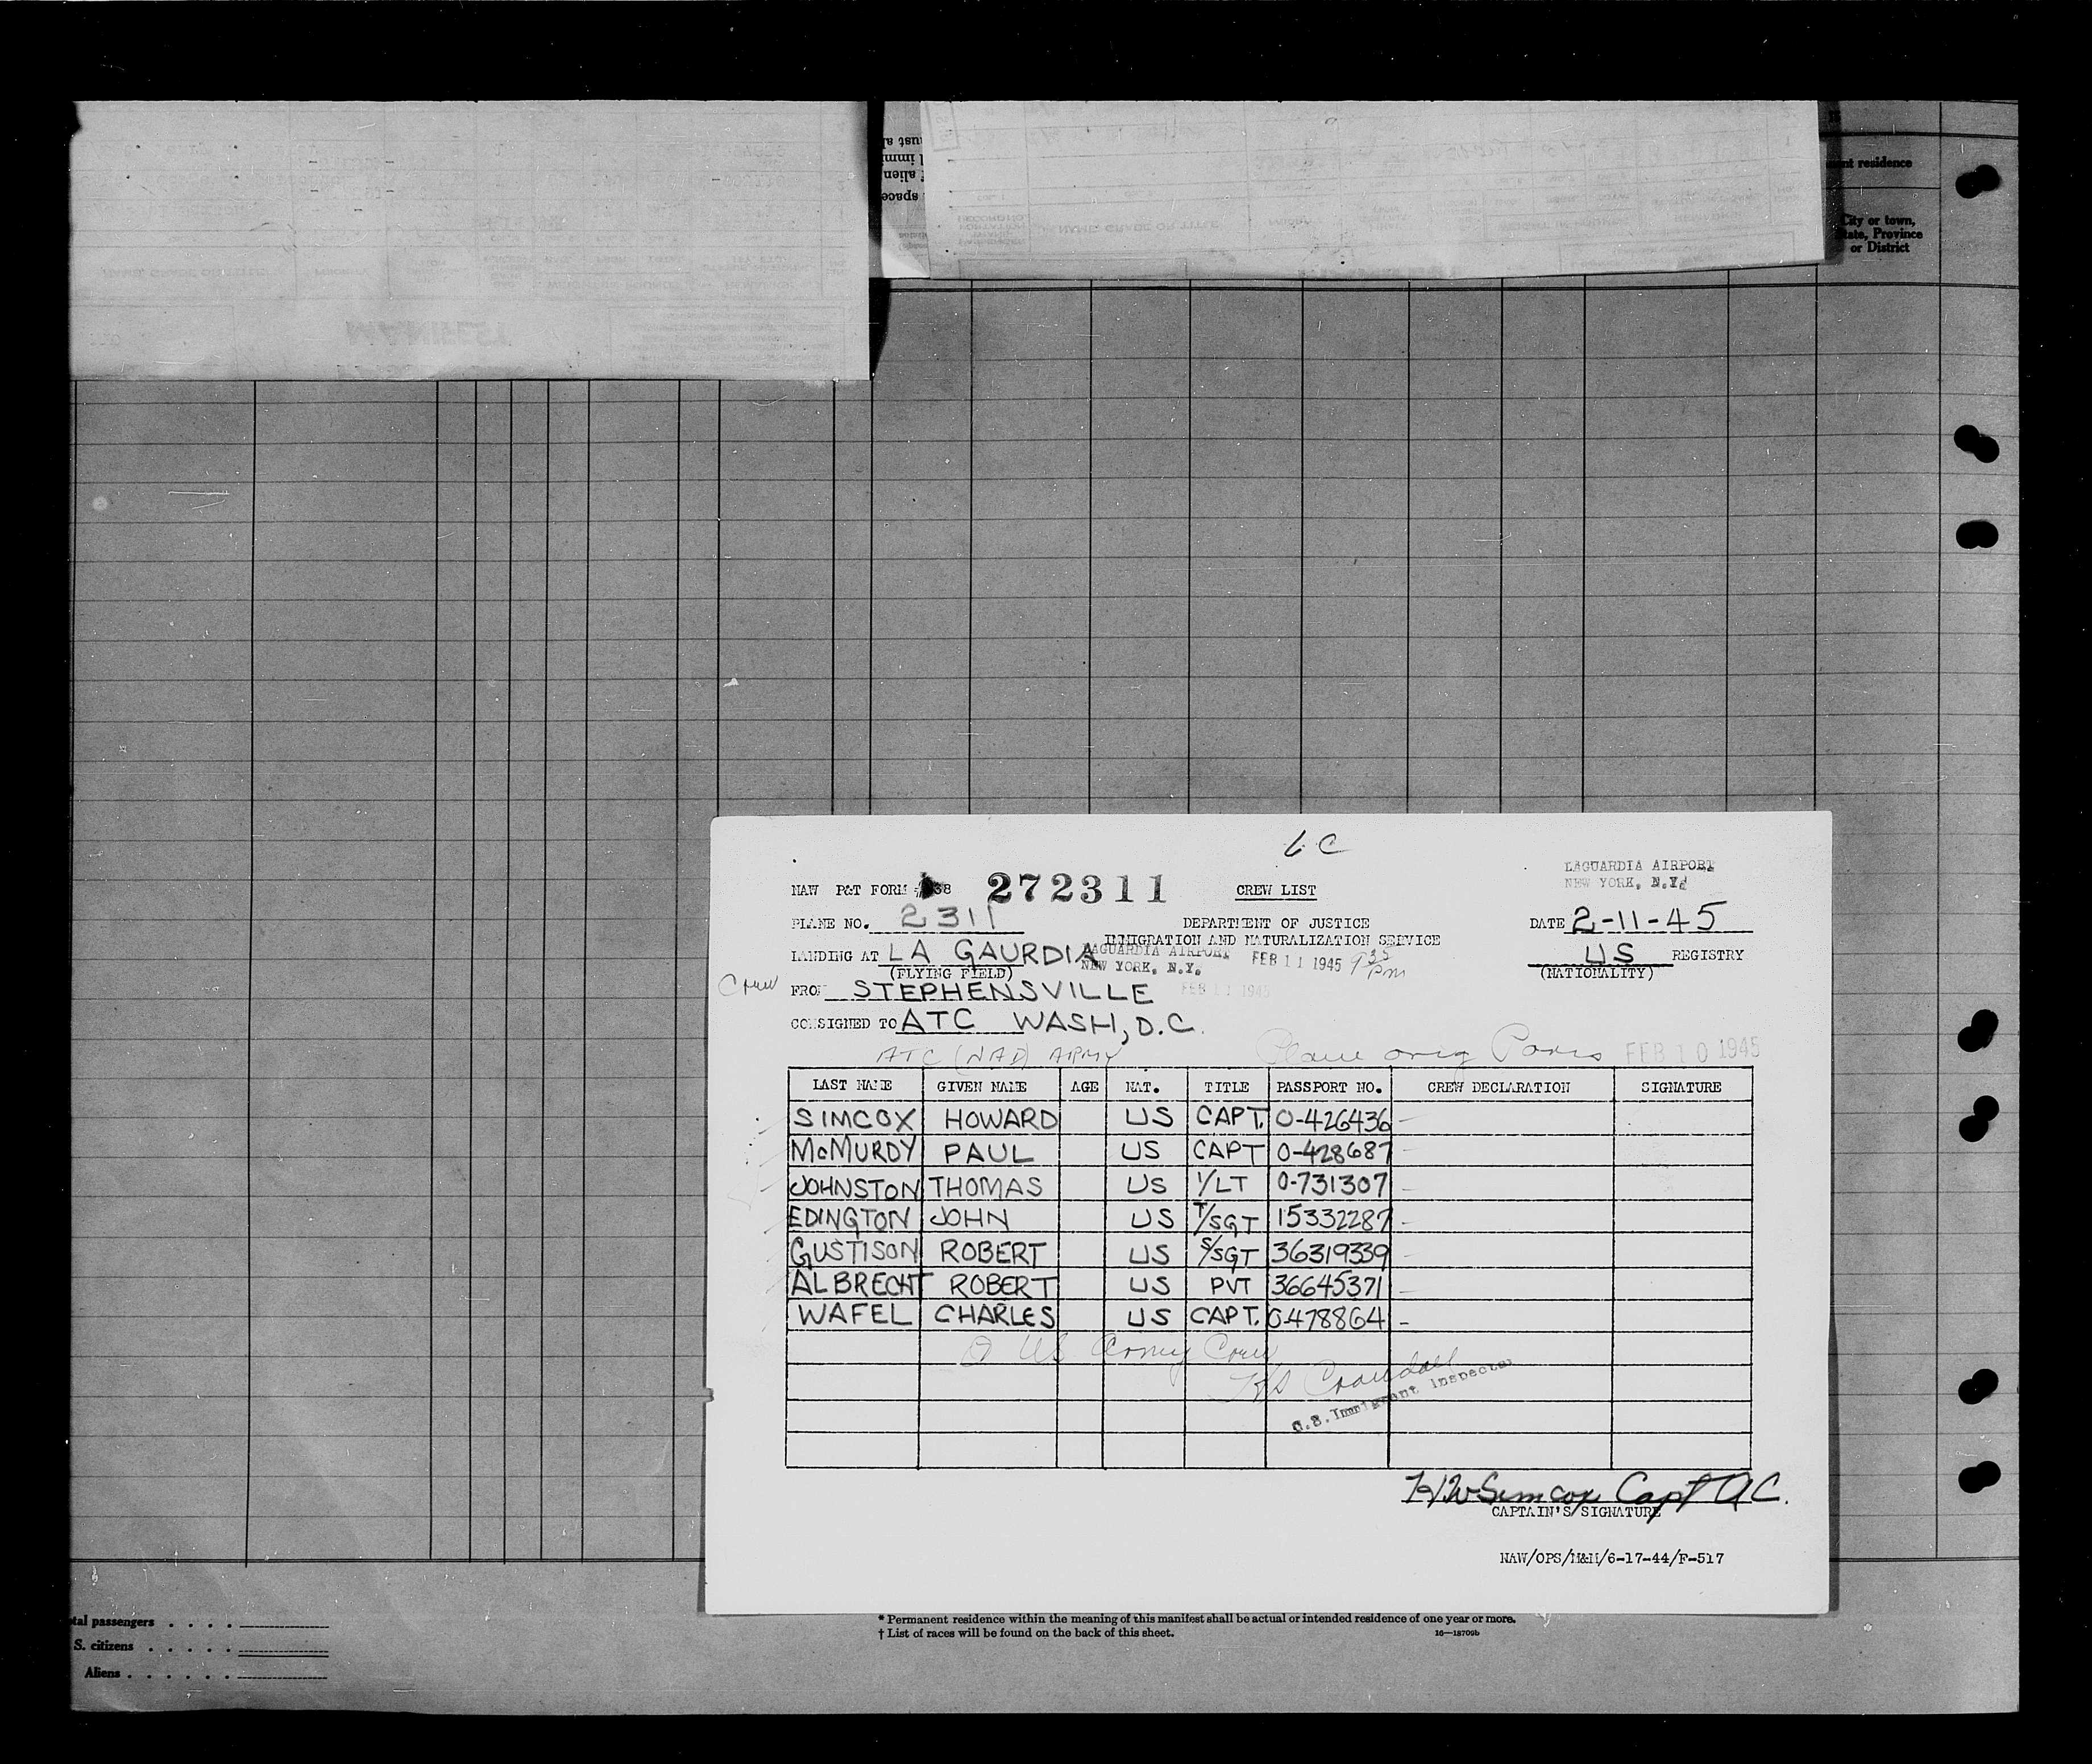 nt residence
City or town,
State, Province
or District
6 C
LAGUARDIA AIRPORT
NEW YORK, N.Y.
NAW P&T FORM 38 272311 CREW LIST
PLANE NO. 2311 DEPARTMENT OF JUSTICE DATE 2-11-45
IMMIGRATION AND NATURALIZATION SERVICE
LANDING AT LA GAURDIA US REGISTRY
(FLYING FIELD) (NATIONALITY)
LAGUARDIA AIRPORT
NEW YORK, N.Y.
FEB 11 1945 9 35 PM
Crew FROM STEPHENSVILLE FEB 11 1945
CONSIGNED TO ATC WASH, D.C.
ATC (NAD) ARMY Plane orig Paris FEB 10 1945
LAST NAME GIVEN NAME AGE NAT. TITLE PASSPORT NO. CREW DECLARATION SIGNATURE
SIMCOX HOWARD US CAPT. 0-426436 -
McMURDY PAUL US CAPT 0-428687 -
JOHNSTON THOMAS US 1/LT 0-731307 -
EDINGTON JOHN US T/SGT 15332287 -
GUSTISON ROBERT US S/SGT 36319339 -
ALBRECHT ROBERT US PVT 36645371 -
WAFEL CHARLES US CAPT. 0-478864 -
US Army Crew
Crandall
U.S. Immigrant Inspector
HW Simcox Capt AC.
CAPTAIN'S SIGNATURE
NAW/OPS/M&M/6-17-44/F-517
tal passengers
S. citizens
Aliens
* Permanent residence within the meaning of this manifest shall be actual or intended residence of one year or more.
† List of races will be found on the back of this sheet.
16—18709b